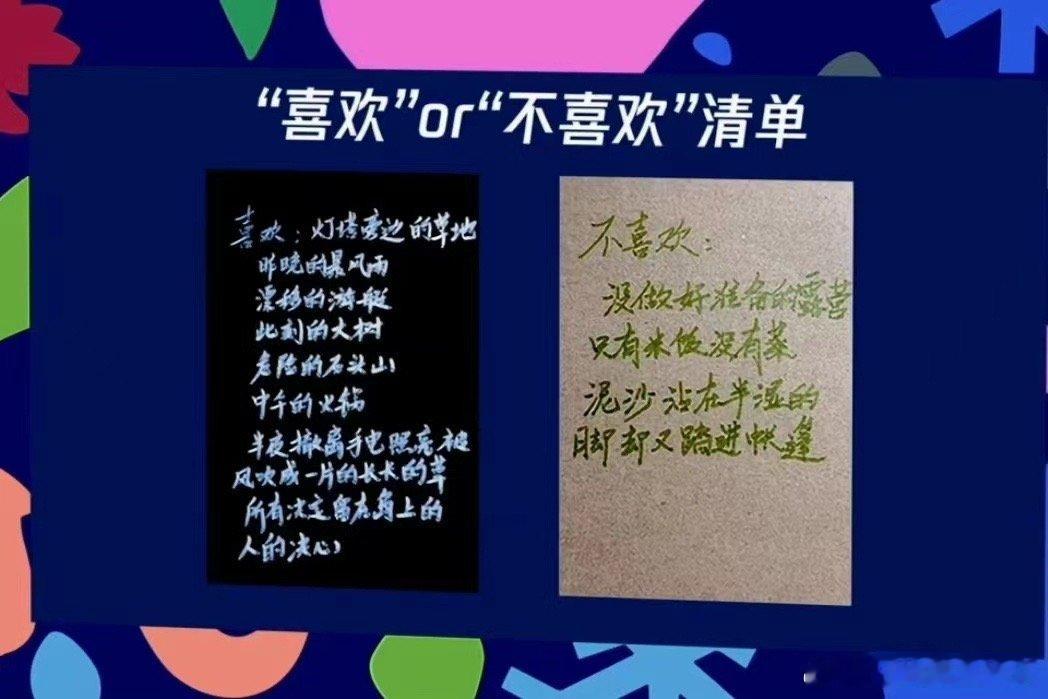 “喜欢”or“不喜欢”清单
喜欢：灯塔旁边的草地
昨晚的暴风雨
漂移的游艇
此刻的大树
危险的石头山
中午的火锅
半夜撤离手电照亮被
风吹成一片的长长的草
所有决定留在岛上的
人的决心
不喜欢：
没做好准备的露营
只有米饭没有菜
泥沙沾在半湿的
脚却又踏进帐篷